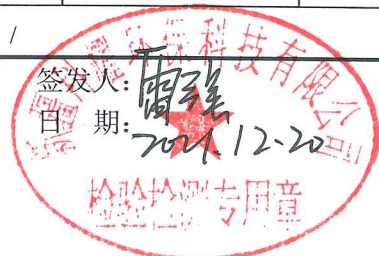 /
签发人：雷强
日　期：2021.12-20
环保科技有限公司
检验检测专用章